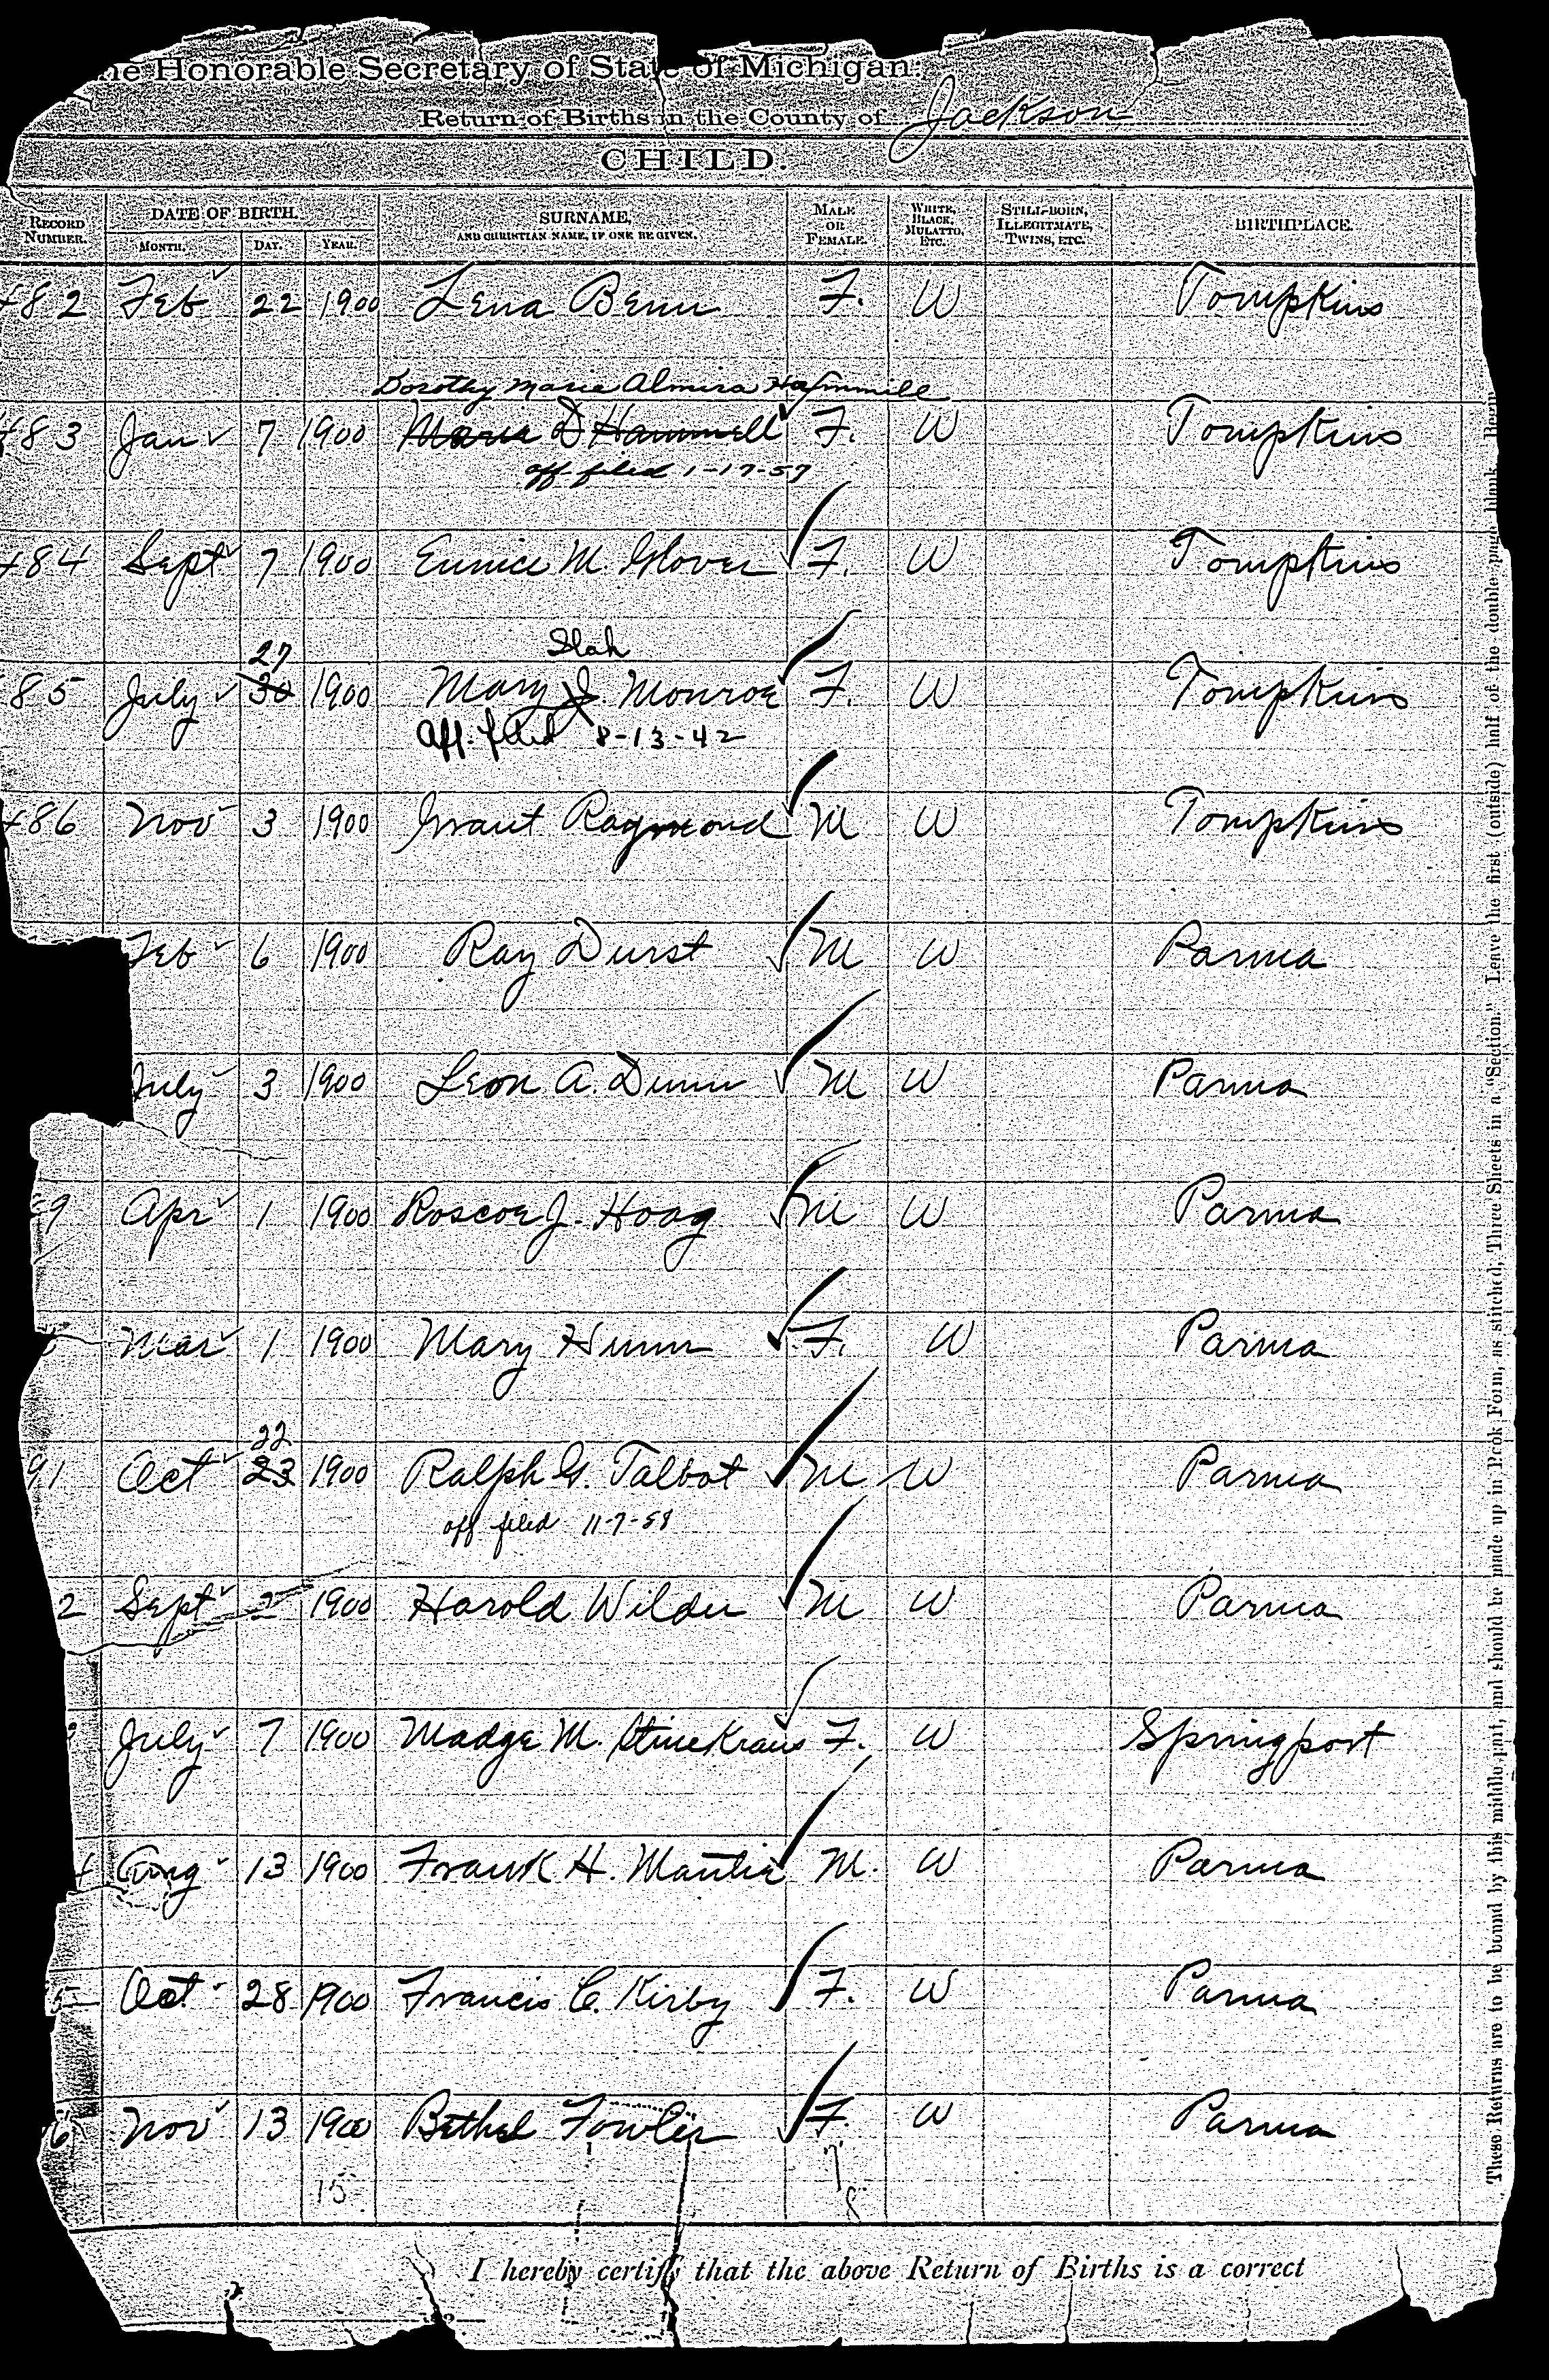 he Honorable Secretary of State of Michigan:
Return of Births in the County of Jackson
CHILD.
RECORD NUMBER. DATE OF BIRTH. MONTH. DAY. YEAR. SURNAME, AND CHRISTIAN NAME, IF ONE BE GIVEN. MALE OR FEMALE. WHITE, BLACK, MULATTO, ETC. STILL-BORN, ILLEGITIMATE, TWINS, ETC. BIRTHPLACE.
482 Feb 22 1900 Lena Benn F. W Tompkins
Dorothy Marie Almira Hammill
483 Jan 7 1900 Maria D Hammell F. W Tompkins
aff filed 1-17-57
484 Sept 7 1900 Eunice M. Glover F. W Tompkins
27 Ilah
85 July 30 1900 Mary J. Monroe F. W Tompkins
Aff. filed 8-13-42
486 Nov 3 1900 Grant Raymond M W Tompkins
Feb 6 1900 Ray Durst M W Parma
July 3 1900 Leon A. Dunn M W Parma
9 Apr 1 1900 Roscoe J. Hoag M W Parma
Mar 1 1900 Mary Hunn F. W Parma
22
91 Oct 23 1900 Ralph G. Talbot M W Parma
aff filed 11-7-58
2 Sept 2 1900 Harold Wilder M W Parma
July 7 1900 Madge M. Stinekraus F. W Springport
4 Aug 13 1900 Frank H. Mantie M. W Parma
5 Oct. 28 1900 Francis C. Kirby F. W Parma
6 Nov 13 1900 Bethel Fowler F. W Parma
15 7
8
I hereby certify that the above Return of Births is a correct
These Returns are to be bound by this middle part, and should be made up in Book Form, as stitched, Three Sheets in a "Section." Leave the first (outside) half of the double page blank.